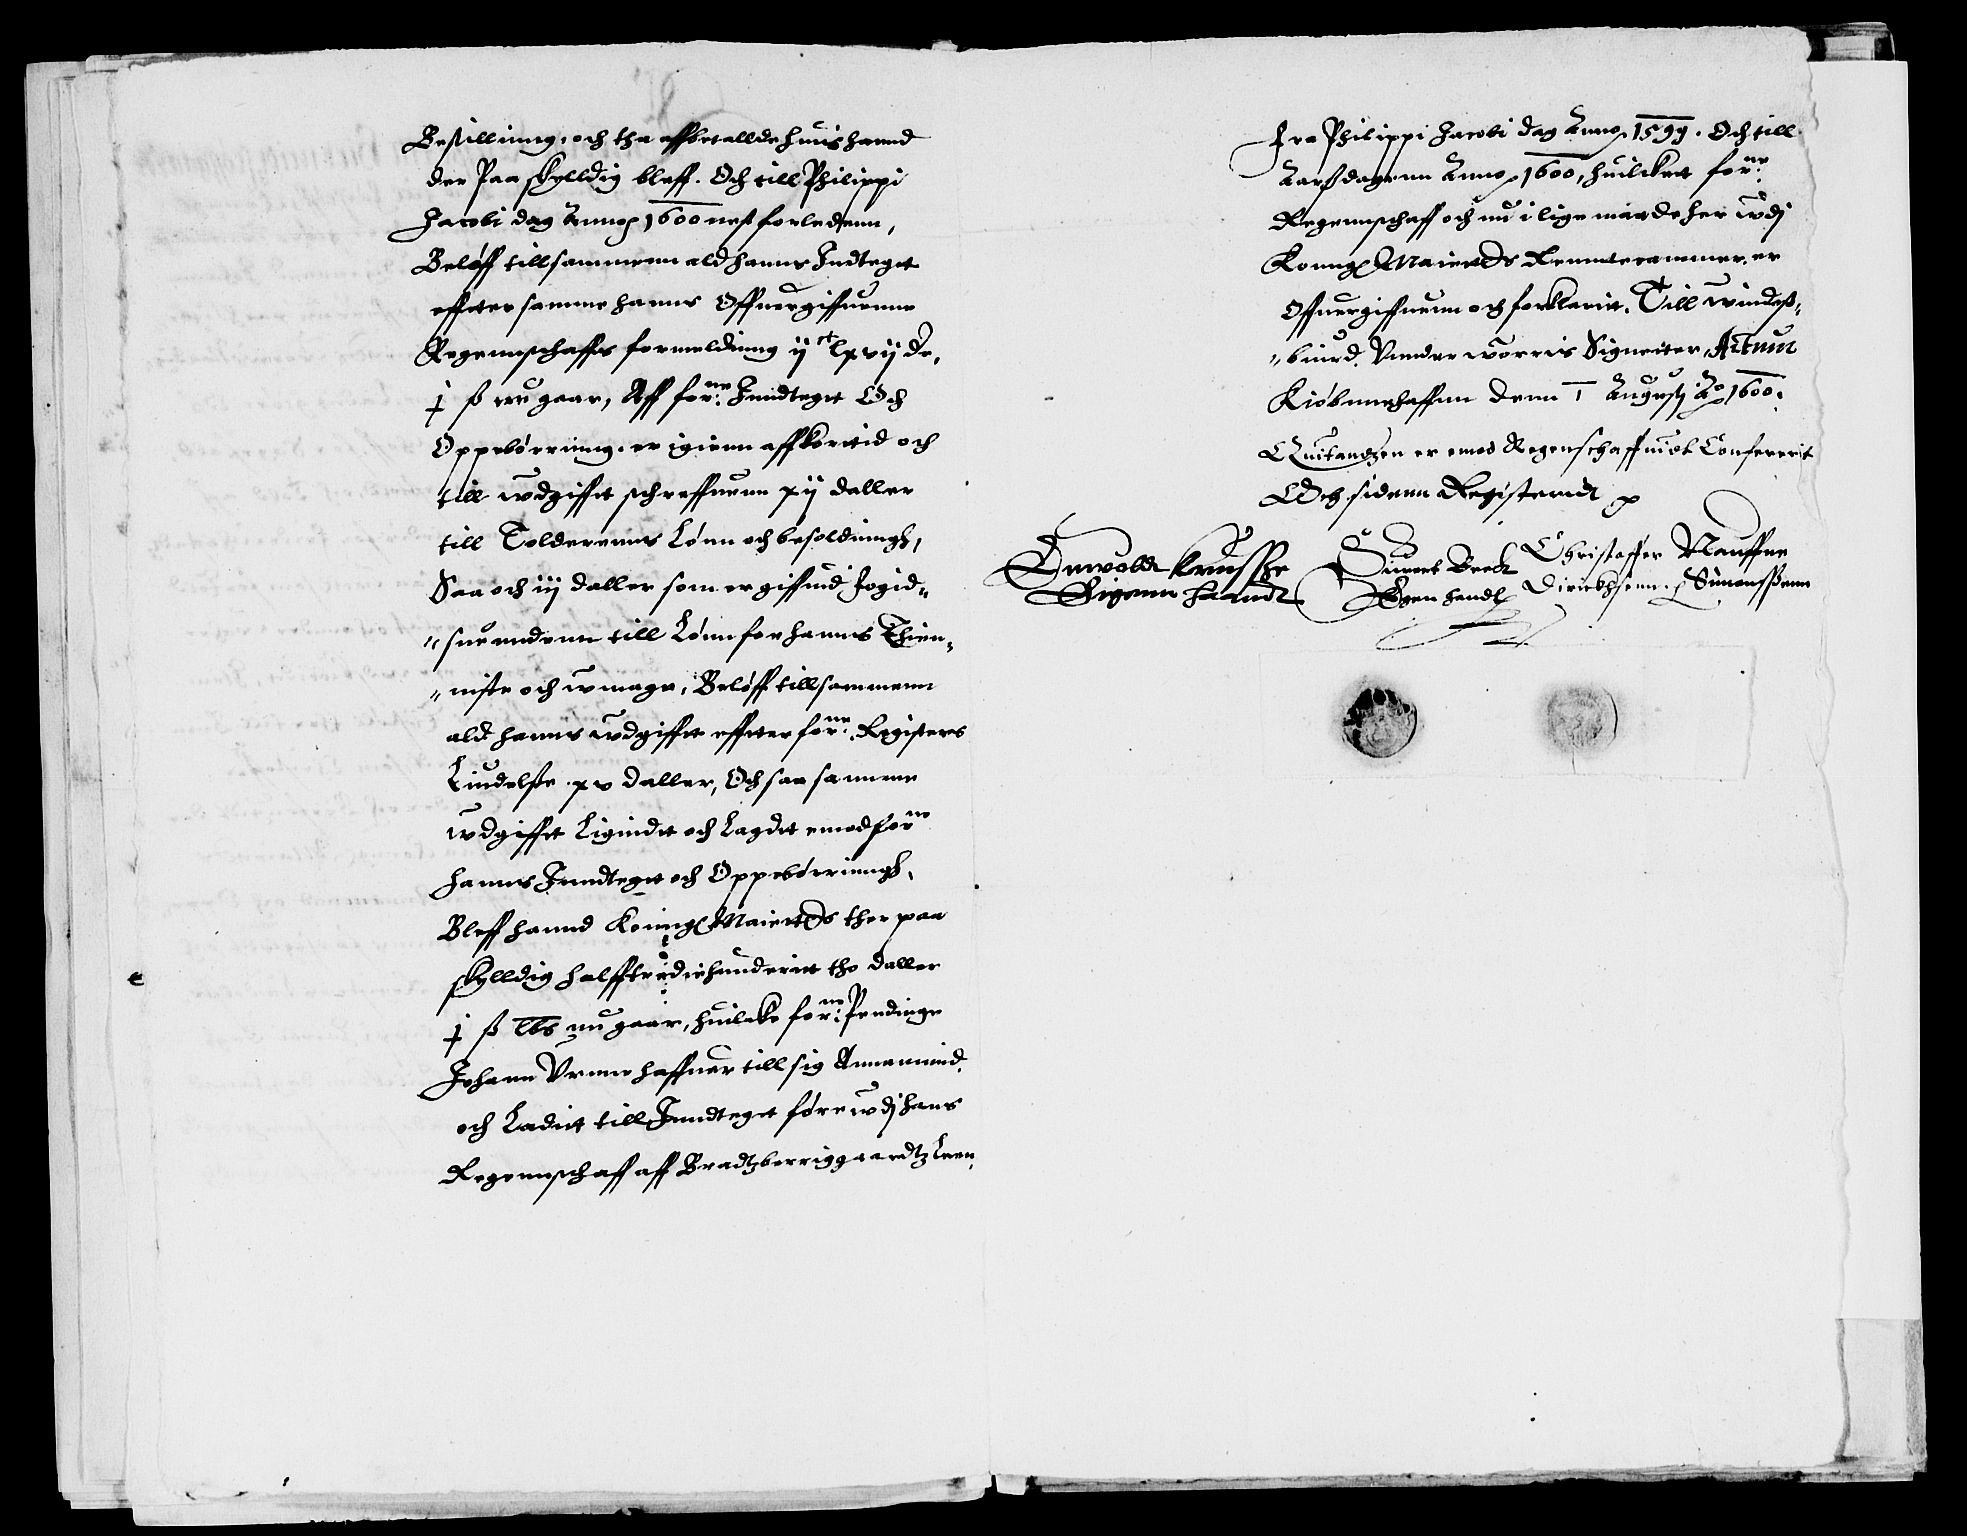 Bestillinng, och tha affbetallde huis hannd
der Paa skylldig bleff. Och till Philippi
Jacobi dag Anno 1600 nest forledenn,
Beløff tillsammenn ald hanns Indteget
effter samme hanns Offuergiffuenne
Regennschaffs formeldinng ij ct lxvij de.
j ß nu gaar, Aff forne: Inndteget Och
Oppebørrinng. er igienn affkortid och
till wdgifft schreffuenn xij daller
till Tolderenns Lønn och besoldinngh,
Saa och iij daller som er giffuid Fogid-
suenndenn till Lønn for hanns Thien-
niste och wmage, Beløff tillsammenn
ald hanns wdgifft effter forne. Registers
Liudelße. xv daller, Och saa samme
wdgifft Ligindt och Lagdt emod forne
hanns Inndteget och Oppebørrinngh,
Bleff hannd Konng: Maietts ther paa
skylldig halfftrediehunderitt tho daller
j ß lbs nu gaar, huilcke forne: Pendinge
Johann Vrnne haffuer till sig Annammid.
och Ladit till Inndteget føre wdj hans
Regennschaff aff Bradtzberriggaardtz Leen,
Fra Philippi Jacobi dag Anno 1599. Och till
Aarßdagenn Anno 1600, huilcket forne:
Regennschaff och nu i lige maade her wdj
Konng: Maietts Renntecammer. er
Offuergiffuenn och forklarit. Till windeß-
biurd. Vnnder worris Signetter, Actum
Kiøbnnehaffnn denn 1 Augustj Ao 1600.
Quitandzen er emod Regenschaffuidt Confererit
Och sidenn Registerridt
Enwoldt Krusse Siuert Beck Christoffer Mauffue
Eigenn Haandt Egen handt Dirickhsenn. Simenssßenn